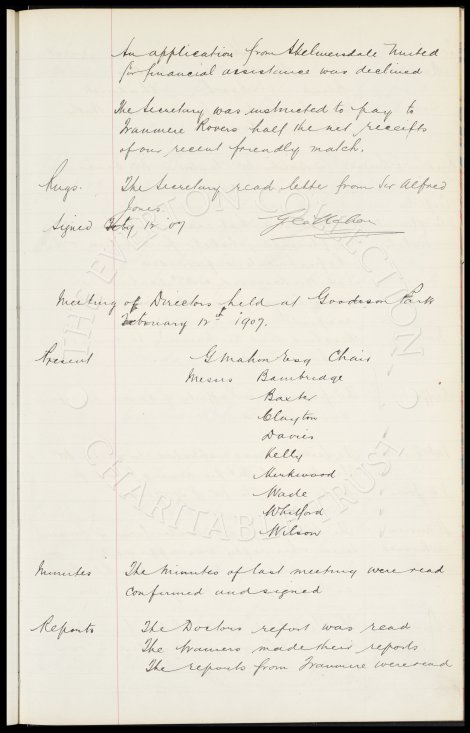 An application from Skelmersdale United
for financial assistance was declined
The Secretary was instructed to pay to
Tranmere Rovers half the net receipts
of our recent friendly match.
Rugs. The Secretary read letter from Sir Alfred
Jones.
Signed Feby 12 '07 G Mahon
Meeting of Directors held at Goodison Park
February 12th 1907.
Present G Mahon Esq Chair
Messrs Bainbridge
Baxter "
Clayton
Davies "
Kelly
Kirkwood "
Wade "
Whitford "
Wilson "
Minutes The Minutes of last meeting were read
confirmed and signed
Reports The Doctors report was read
The trainers made their reports
The reports from Tranmere were read
THE EVERTON COLLECTION
CHARITABLE TRUST